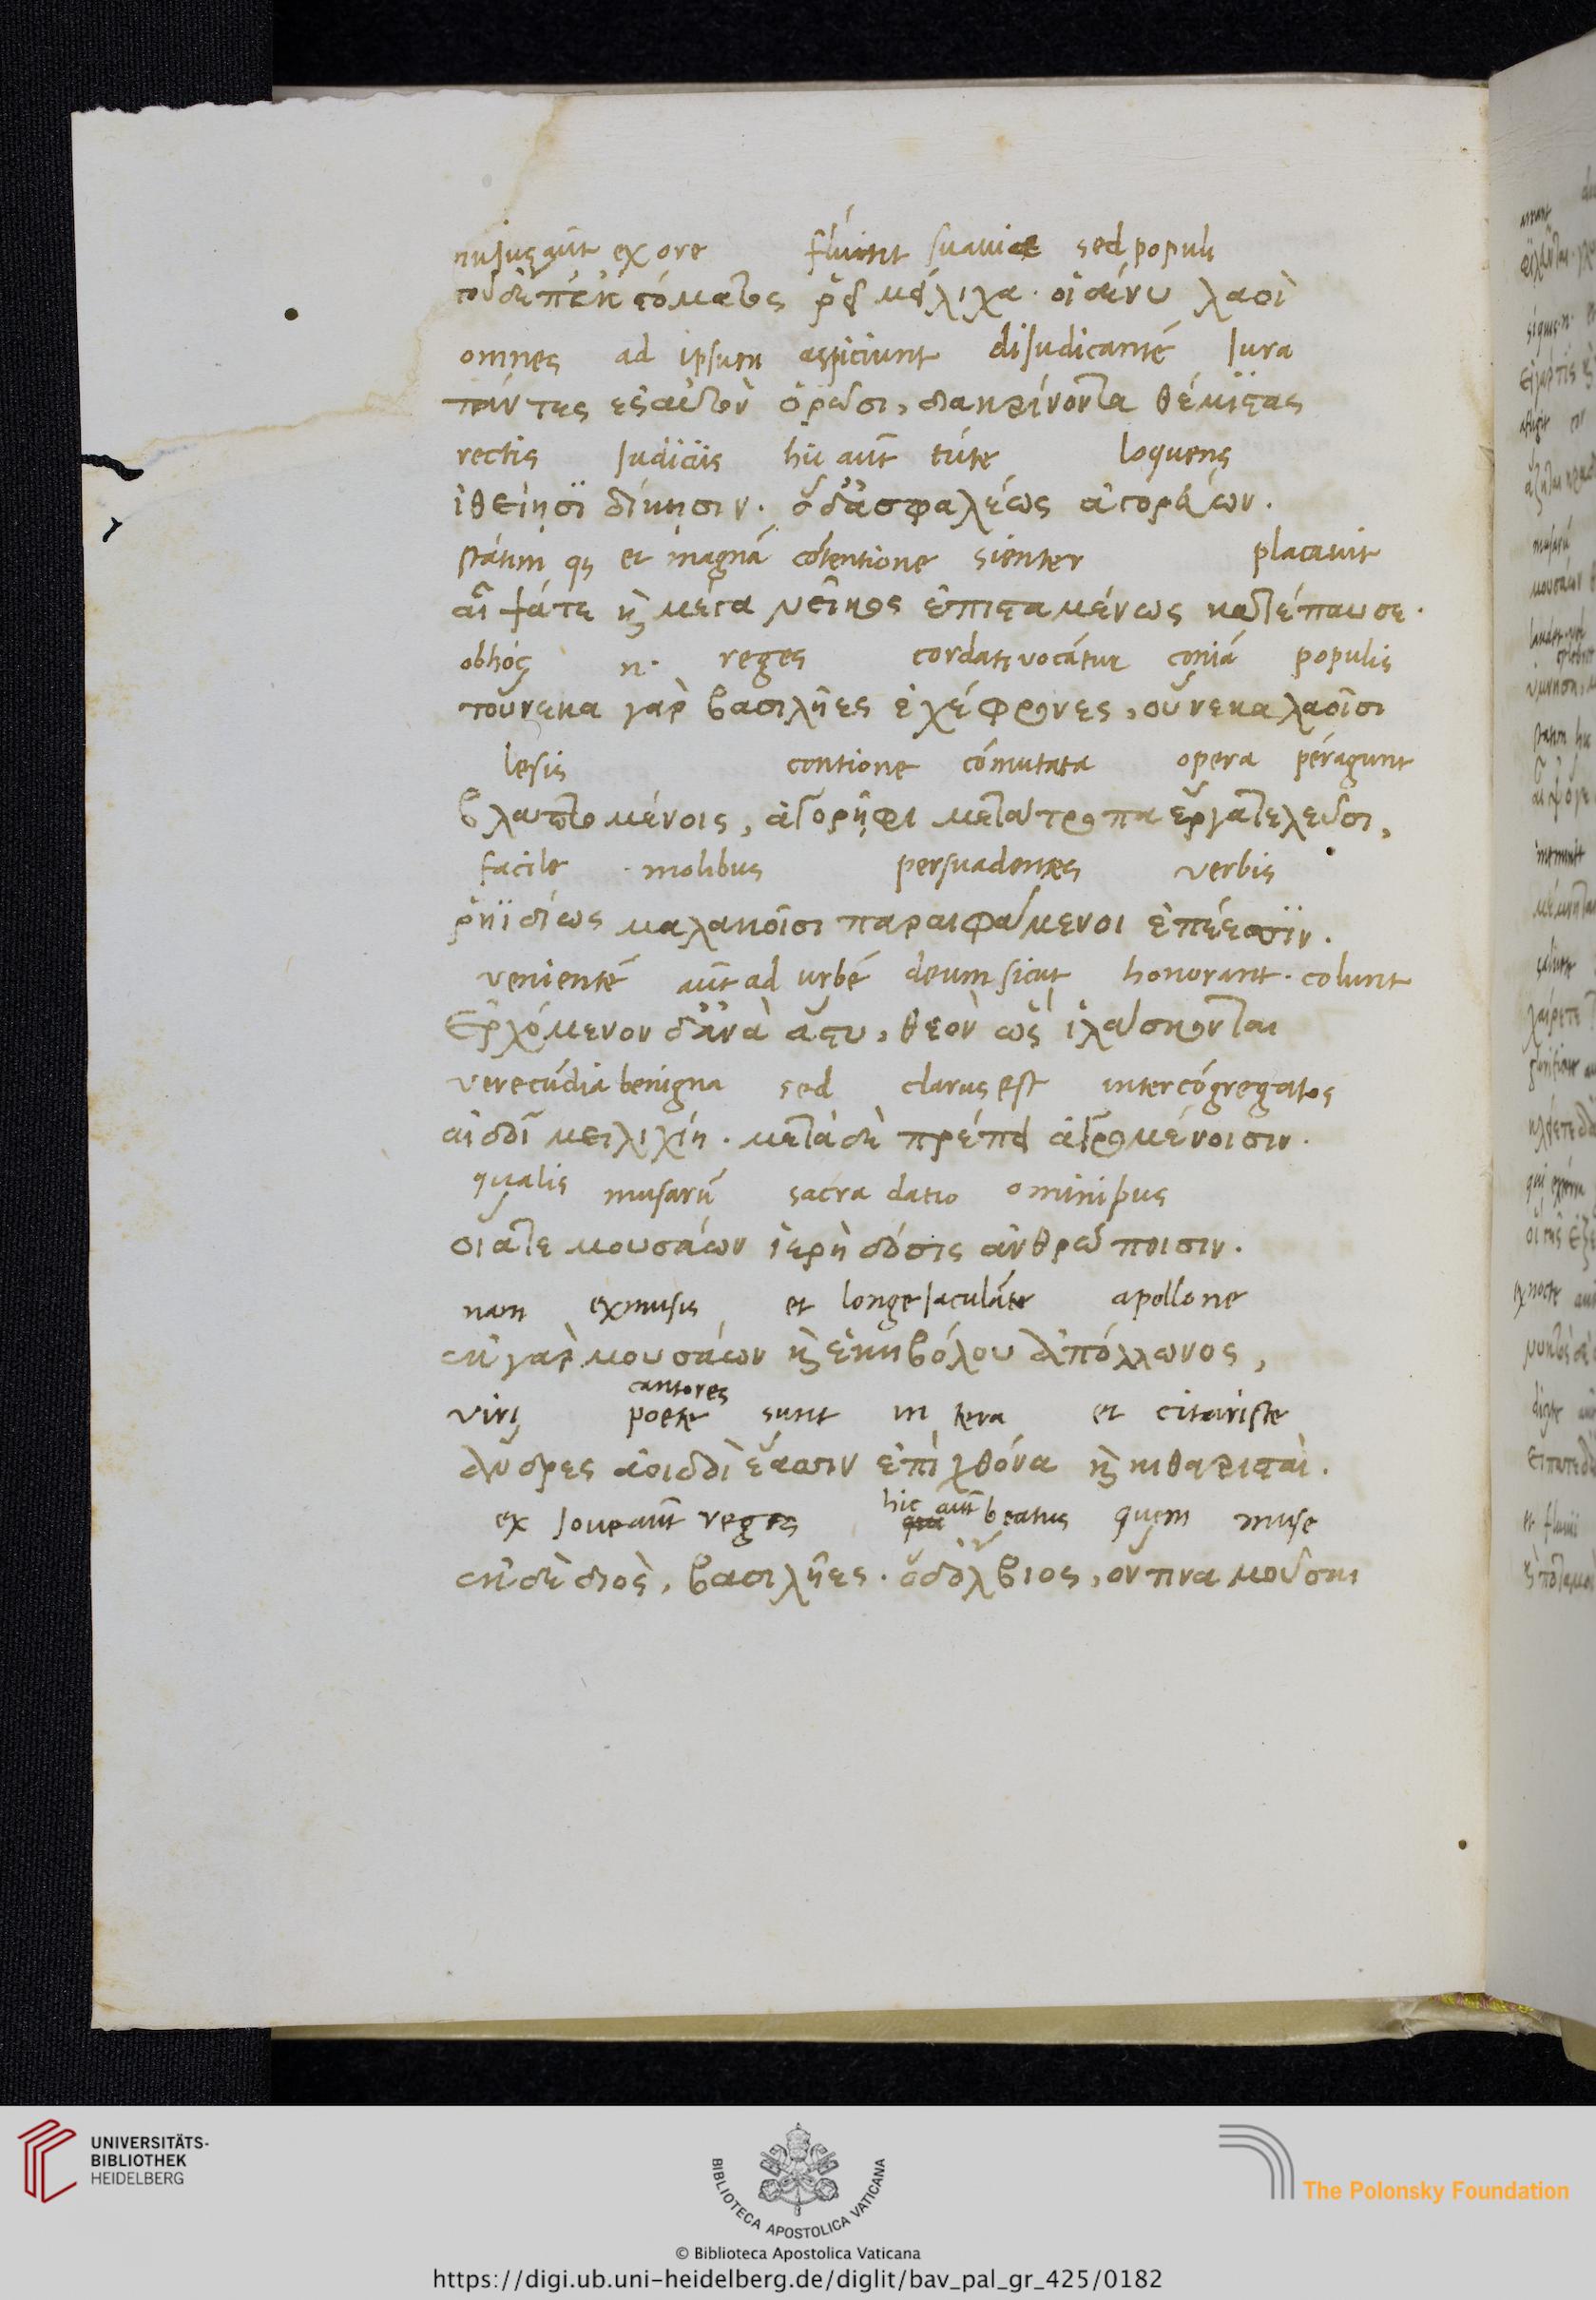 aūt ex ore fluunt suauia sed populi
τοῦδ' ἔπε' ἐκ στόματος ῥεῖ μείλιχα· οἱ δέ νυ λαοὶ
omnes ad ipsum aspiciunt disiudicantē Jura
πάντες ἐς αὐτὸν ὁρῶσι, διακρίνοντα θέμιστας
rectis Judiciis hic aūt tute loquens
ἰθείῃσι δίκῃσιν· ὁ δ' ἀσφαλέως ἀγορεύων·
statim qȝ et magnā cōtentione sienter placauit
αἶψά τε καὶ μέγα νεῖκος ἐπισταμένως κατέπαυσε·
ob hoc n· reges cordati vocātur populis
τοὔνεκα γὰρ βασιλῆες ἐχέφρονες, οὕνεκα λαοῖσι
lesis contione cōmutata opera peragunt
βλαπτομένοις, ἀγορῆφι μετάτροπα ἔργα τελεῦσι,
facile molibus persuadentes verbis
ῥηϊδίως μαλακοῖσι παραιφάμενοι ἐπέεσσιν·
venientē aūt ad urbē deum sicut honorant· colunt
Ἐρχόμενον δ' ἀνὰ ἄστυ, θεὸν ὣς ἱλάσκονται
verecūdia benigna sed clarus est inter cōgregatos
αἰδοῖ μειλιχίῃ· μετὰ δὲ πρέπει ἀγρομένοισιν·
qualis musarū sacra datio ominibus
οἷά τε μουσάων ἱερὴ δόσις ἀνθρώποισιν·
nam ex musis et longe Jaculāte apollone
ἐκ γὰρ μουσάων καὶ ἑκηβόλου Ἀπόλλωνος,
cantores
viri poete sunt in tera et citariste
ἄνδρες ἀοιδοὶ ἔασιν ἐπὶ χθόνα καὶ κιθαρισταί·
ex Joue aūt reges hic aūt beatus quem muse
ἐκ δὲ διὸς, βασιλῆες· ὁ δ' ὄλβιος, ὅντινα μοῦσαι
UNIVERSITÄTS-
BIBLIOTHEK
HEIDELBERG
BIBLIOTECA APOSTOLICA VATICANA
The Polonsky Foundation
© Biblioteca Apostolica Vaticana
https://digi.ub.uni-heidelberg.de/diglit/bav_pal_gr_425/0182